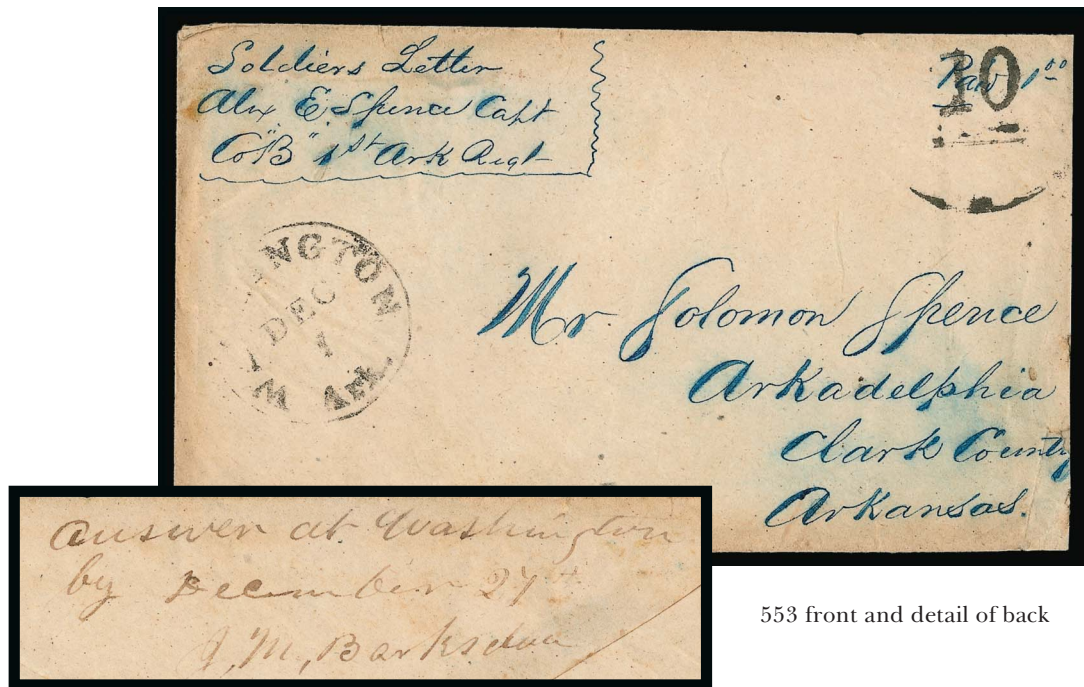 Soldiers Letter
Alex E Spence Capt
Co "B" 1st Ark Regt
10
Paid 1 00
NGTON
DEC
1
Ark.
Mr Solomon Spence
Arkadelphia
Clark County
Arkansas.
answer at Washington
by December 27th
J. M, Barksdale
553 front and detail of back